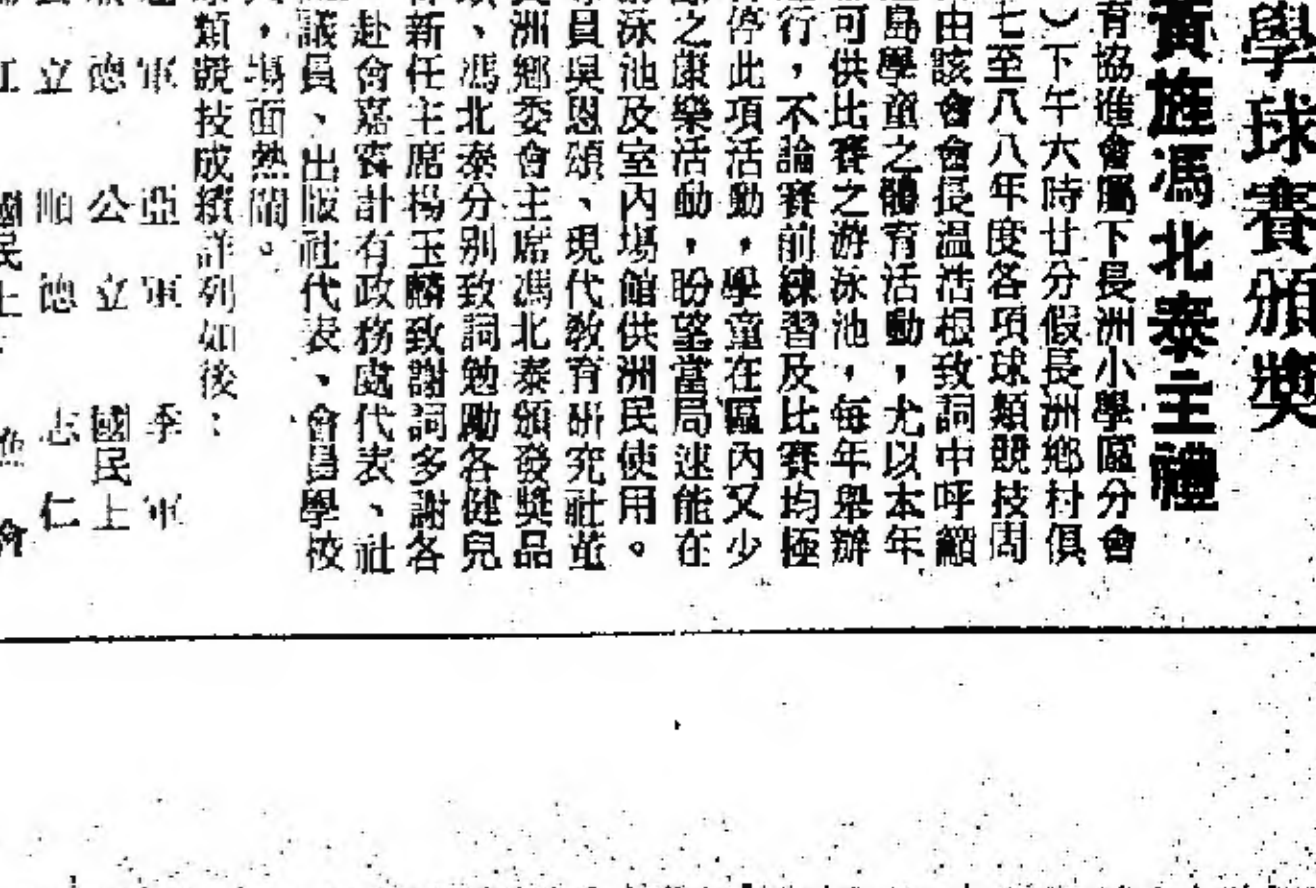 學球賽頒獎
黃旌馮北泰主禮
育協進會屬下長洲小學區分會
）下午六時廿分假長洲鄉村俱
七至八八年度各項球類競技周
由該會會長温浩根致詞中呼籲
島學童之體育活動，尤以本年
可供比賽之游泳池，每年舉辦
行，不論賽前練習及比賽均極
停此項活動，學童在區內又少
之康樂活動，盼望當局速能在
泳池及室內場館供洲民使用。
員吳恩頌、現代教育研究社董
洲鄉委會主席馮北泰頒發獎品
、馮北泰分别致詞勉勵各健兒
新任主席楊玉麟致謝詞多謝各
赴會嘉賓計有政務處代表、社
議員、出版社代表、會員學校
，場面熱鬧。
類競技成績詳列如後：
軍 亞軍 季軍
德 公立 國民上
立 順德 志仁
國民上 漁會